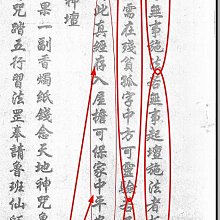 無事施法若無事起壇施法者
需在殘貧孤字中方可靈驗若
此真經在人屋檐可保家中平安
神壇
果一副香燭紙錢念天地神咒魯
咒踏五行習法罡奉請魯班仙師